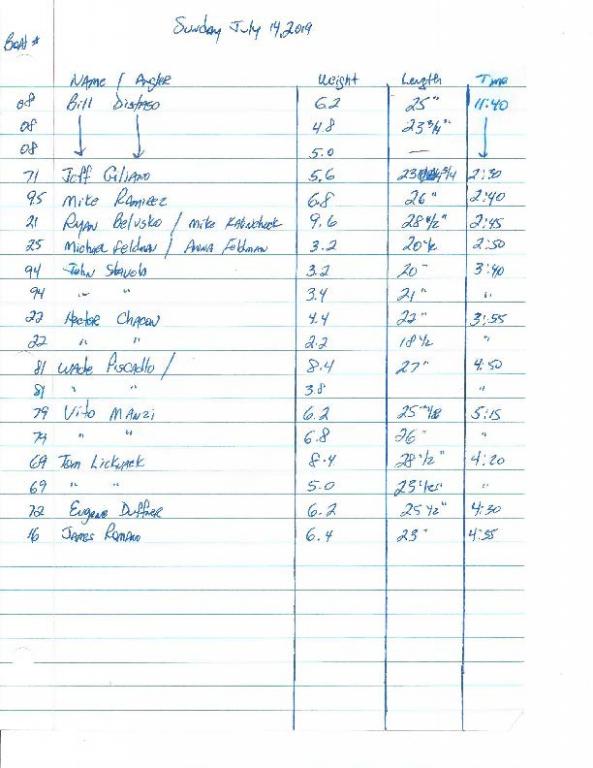 Sunday July 14, 2019
Boat #
Name / Angler Weight Length Time
08 Bill Distaso 6.2 25" 11:40
08 4.8 23 3/4"
08 5.0 —
71 Jeff Giliano 5.6 23 3/4 2:30
95 Mike Ramirez 6.8 26" 2:40
21 Ryan Belusko / Mike 9.6 28 1/2" 2:45
25 Michael Feldman / Anna Feldman 3.2 20 1/2 2:50
94 John Stavola 3.2 20" 3:40
94 " " 3.4 21" "
22 Hector Chacon 4.4 22" 3:55
22 " " 2.2 18 1/2 "
81 Wade Piscadlo / 8.4 27" 4:50
81 " " 3.8 "
79 Vito Manzi 6.2 25 5:15
79 " " 6.8 26" "
69 Tom 8.4 28 1/2" 4:20
69 " " 5.0 "
72 Eugene Duffner 6.2 25 1/2" 4:30
16 James Romano 6.4 23" 4:55